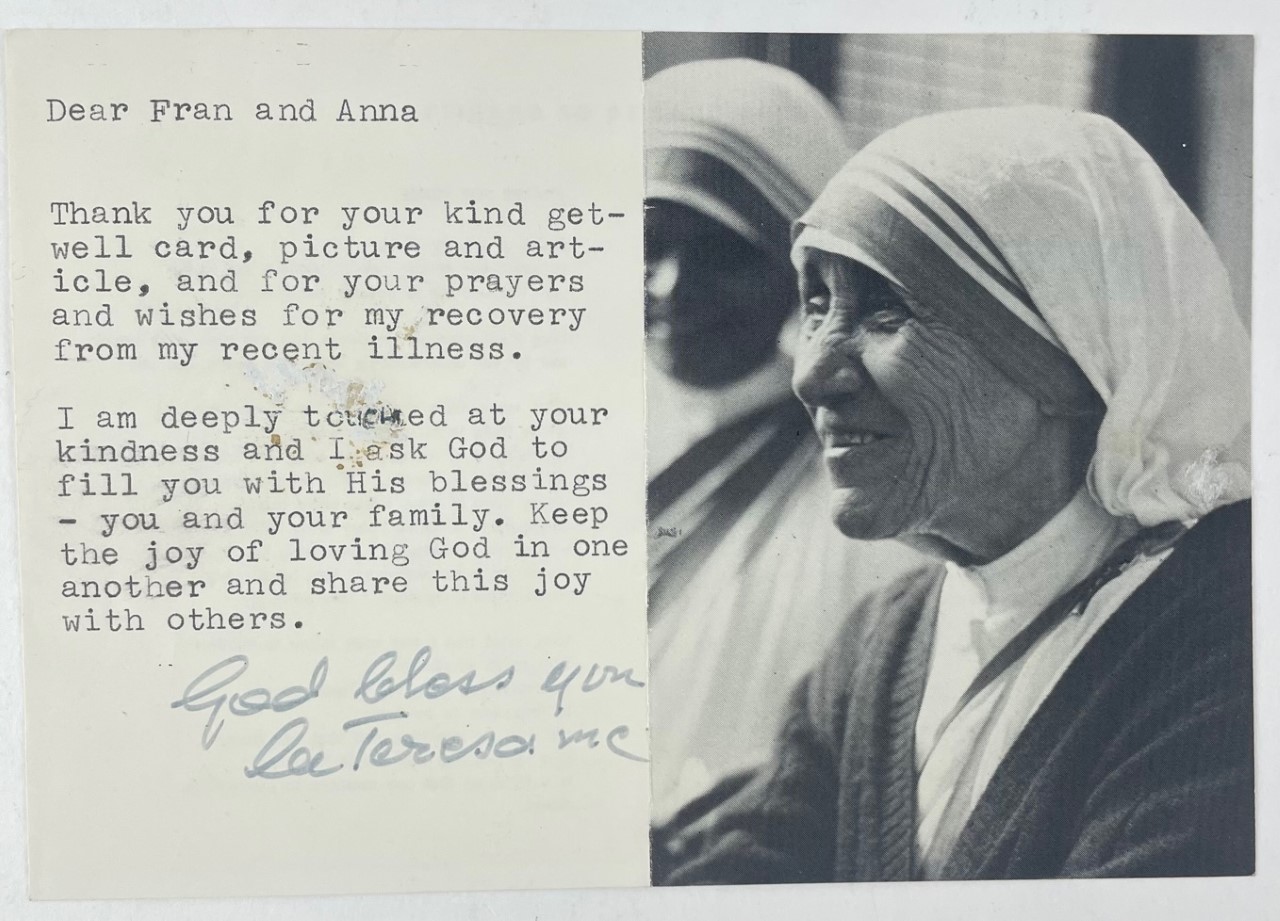 Dear Fran and Anna
Thank you for your kind get-
well card, picture and art-
icle, and for your prayers
and wishes for my recovery
from my recent illness.
I am deeply touched at your
kindness and I ask God to
fill you with His blessings
- you and your family. Keep
the joy of loving God in one
another and share this joy
with others.
God bless you
lee Teresa mc